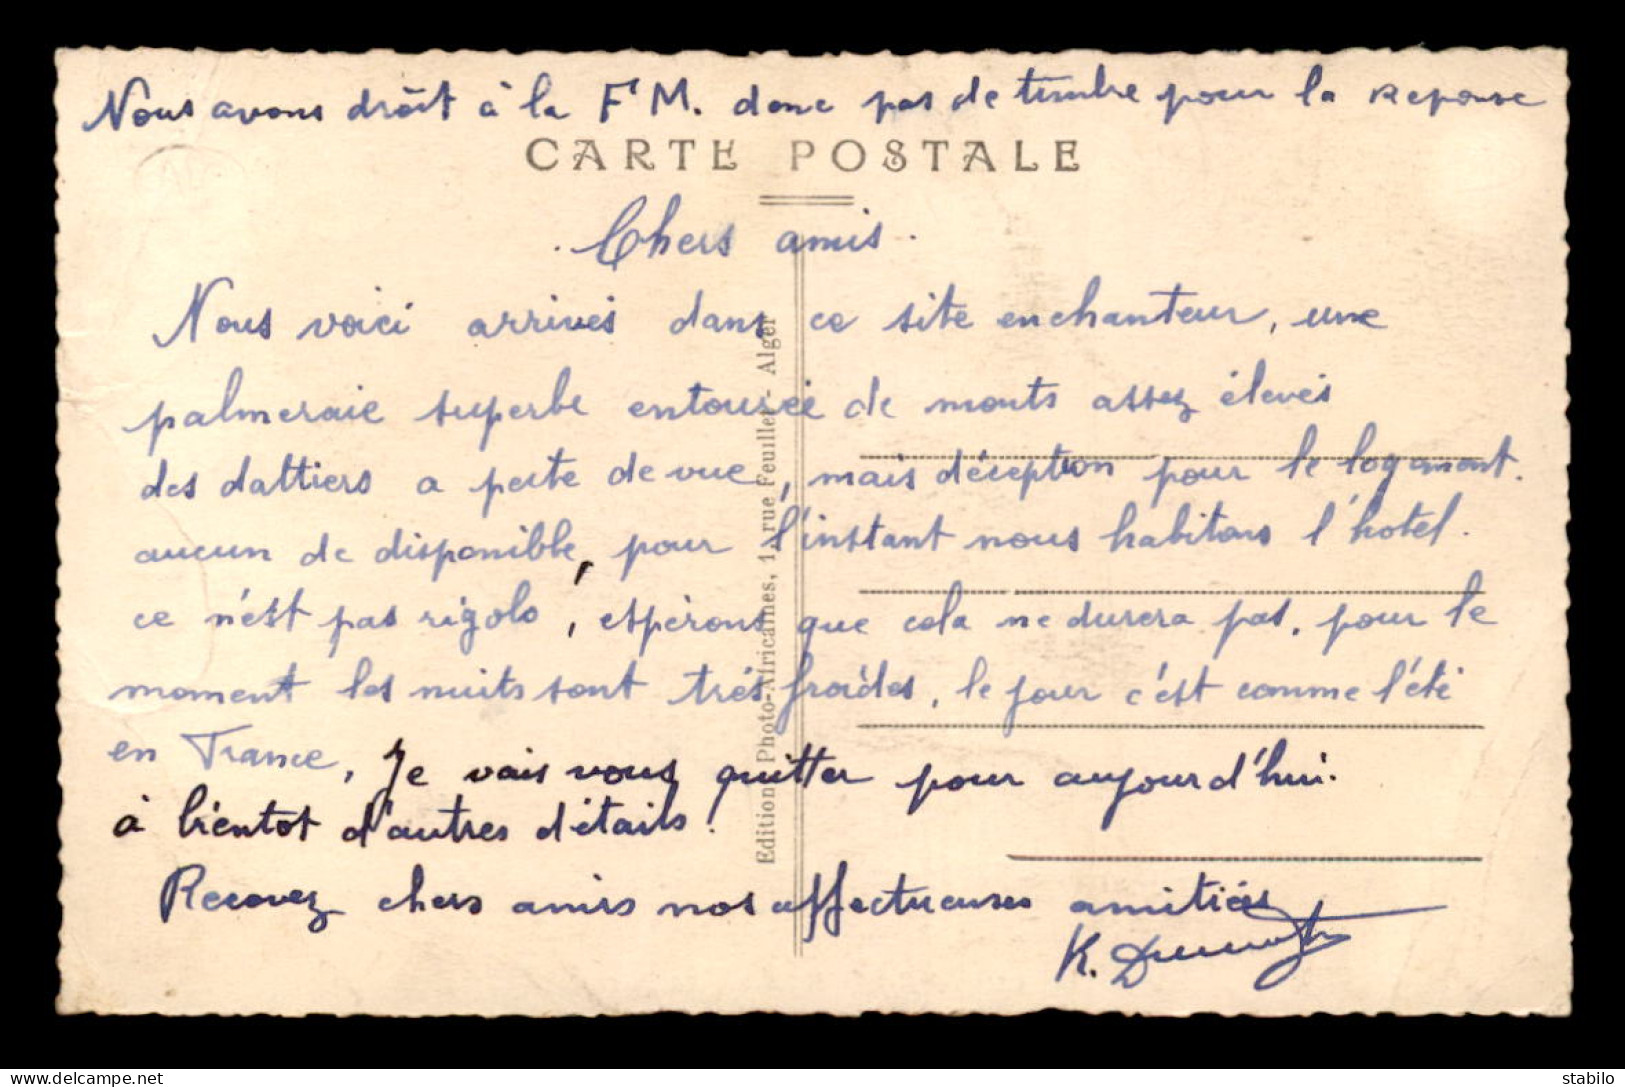 Nous avons droit à la F.M. donc pas de timbre pour la reponse
CARTE POSTALE
Chers amis.
Nous voici arrivés dans ce site enchanteur, une
palmeraie superbe entourée de monts assez élevés
des dattiers a perte de vue, mais déception pour le logement.
aucun de disponible, pour l'instant nous habitons l'hotel.
ce n'est pas rigolo, espérons que cela ne durera pas. pour le
moment les nuits sont trés froides, le jour c'est comme l'été
en France, Je vais vous quitter pour aujourd'hui.
à bientot d'autres détails.
Recevez chers amis nos affectueuses amitiés
K.
Edition Photo-Africaines, 1, rue Feuillet - Alger
delcampe.net
stabilo